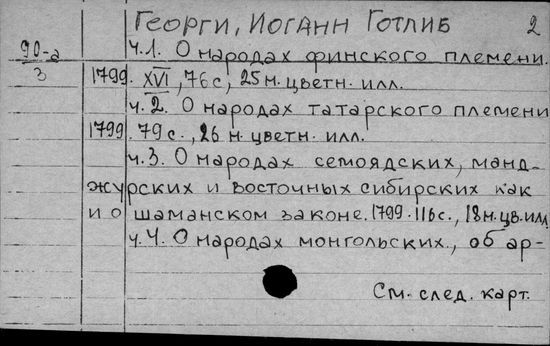 Георги, Иоганн Готлиб 2
90-а
3
ч.1. О народах финского племени.
1799. XVI, 76 с, 25 н. цветн. илл.
ч. 2. О народах татарского племени
1799. 79 с., 26 н. цветн. илл.
ч.3. О народах семоядских, манд-
журских и восточных сибирских как
и о шаманском законе. 1799. 116 с., 18 н. цв. илл
ч.4. О народах монгольских., об ар-
См. след. карт.